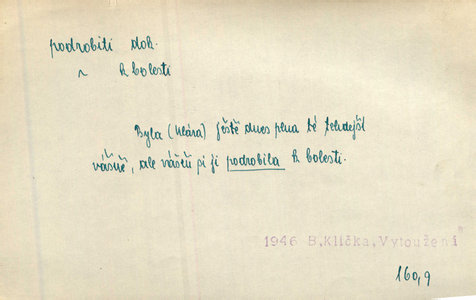 podrobiti dok.
~ k bolesti
Byla (Klára) ještě dnes plna té tehdejší
vášně, ale vášeň si ji podrobila k bolesti.
1946 B.Klička,Vytoužení
160,9